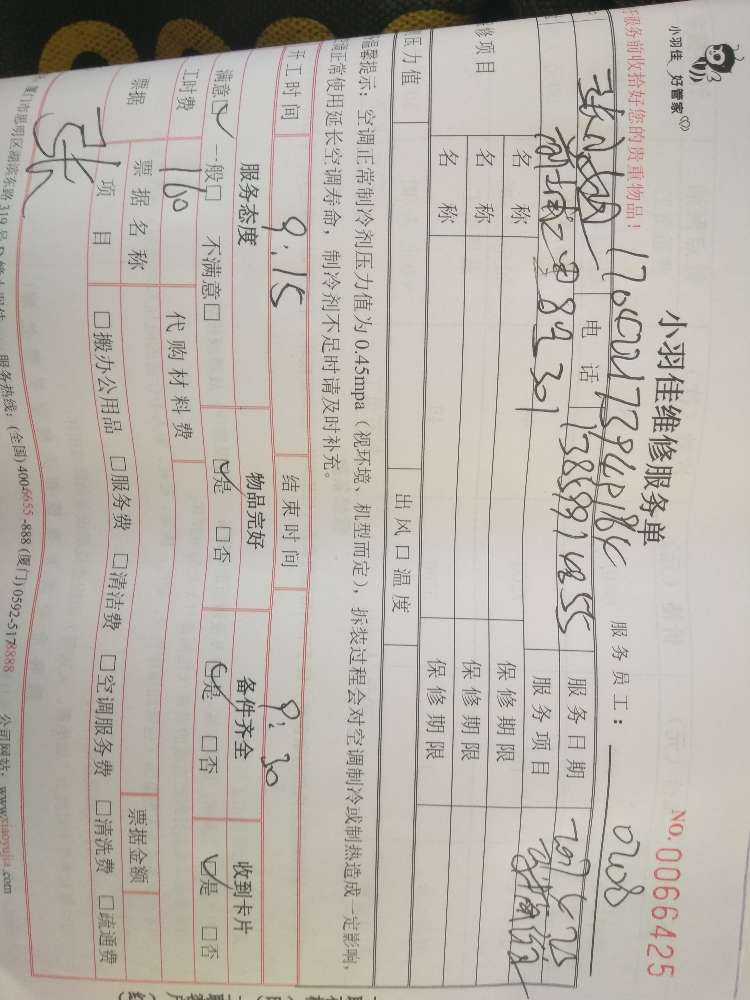 小羽佳 好管家
小羽佳维修服务单
NO.0066425
服务前收拾好您的贵重物品!
服务员工: 0708
电话 服务日期
服务项目
301
修项目 名称 保修期限
名称 保修期限
名称 保修期限
压力值 出风口温度
温馨提示: 空调正常制冷剂压力值为0.45mpa(视环境、机型而定), 拆装过程会对空调制冷或制热造成一定影响,
正常使用延长空调寿命, 制冷剂不足时请及时补充。
开工时间 9:15 结束时间 9:30
服务态度 物品完好 备件齐全 收到卡片
满意☑ 一般□ 不满意□ ☑是 □否 ☑是 □否 ☑是 □否
工时费 160 代购材料费
票据 票据名称 票据金额
项目 □搬办公用品 □服务费 □清洁费 □空调服务费 □清洗费 □疏通费
张
厦门市思明区湖滨东路319号 服务热线: (全国)4006655-888 (厦门)0592-5178888 公司网站: www.xiaoyujia.com